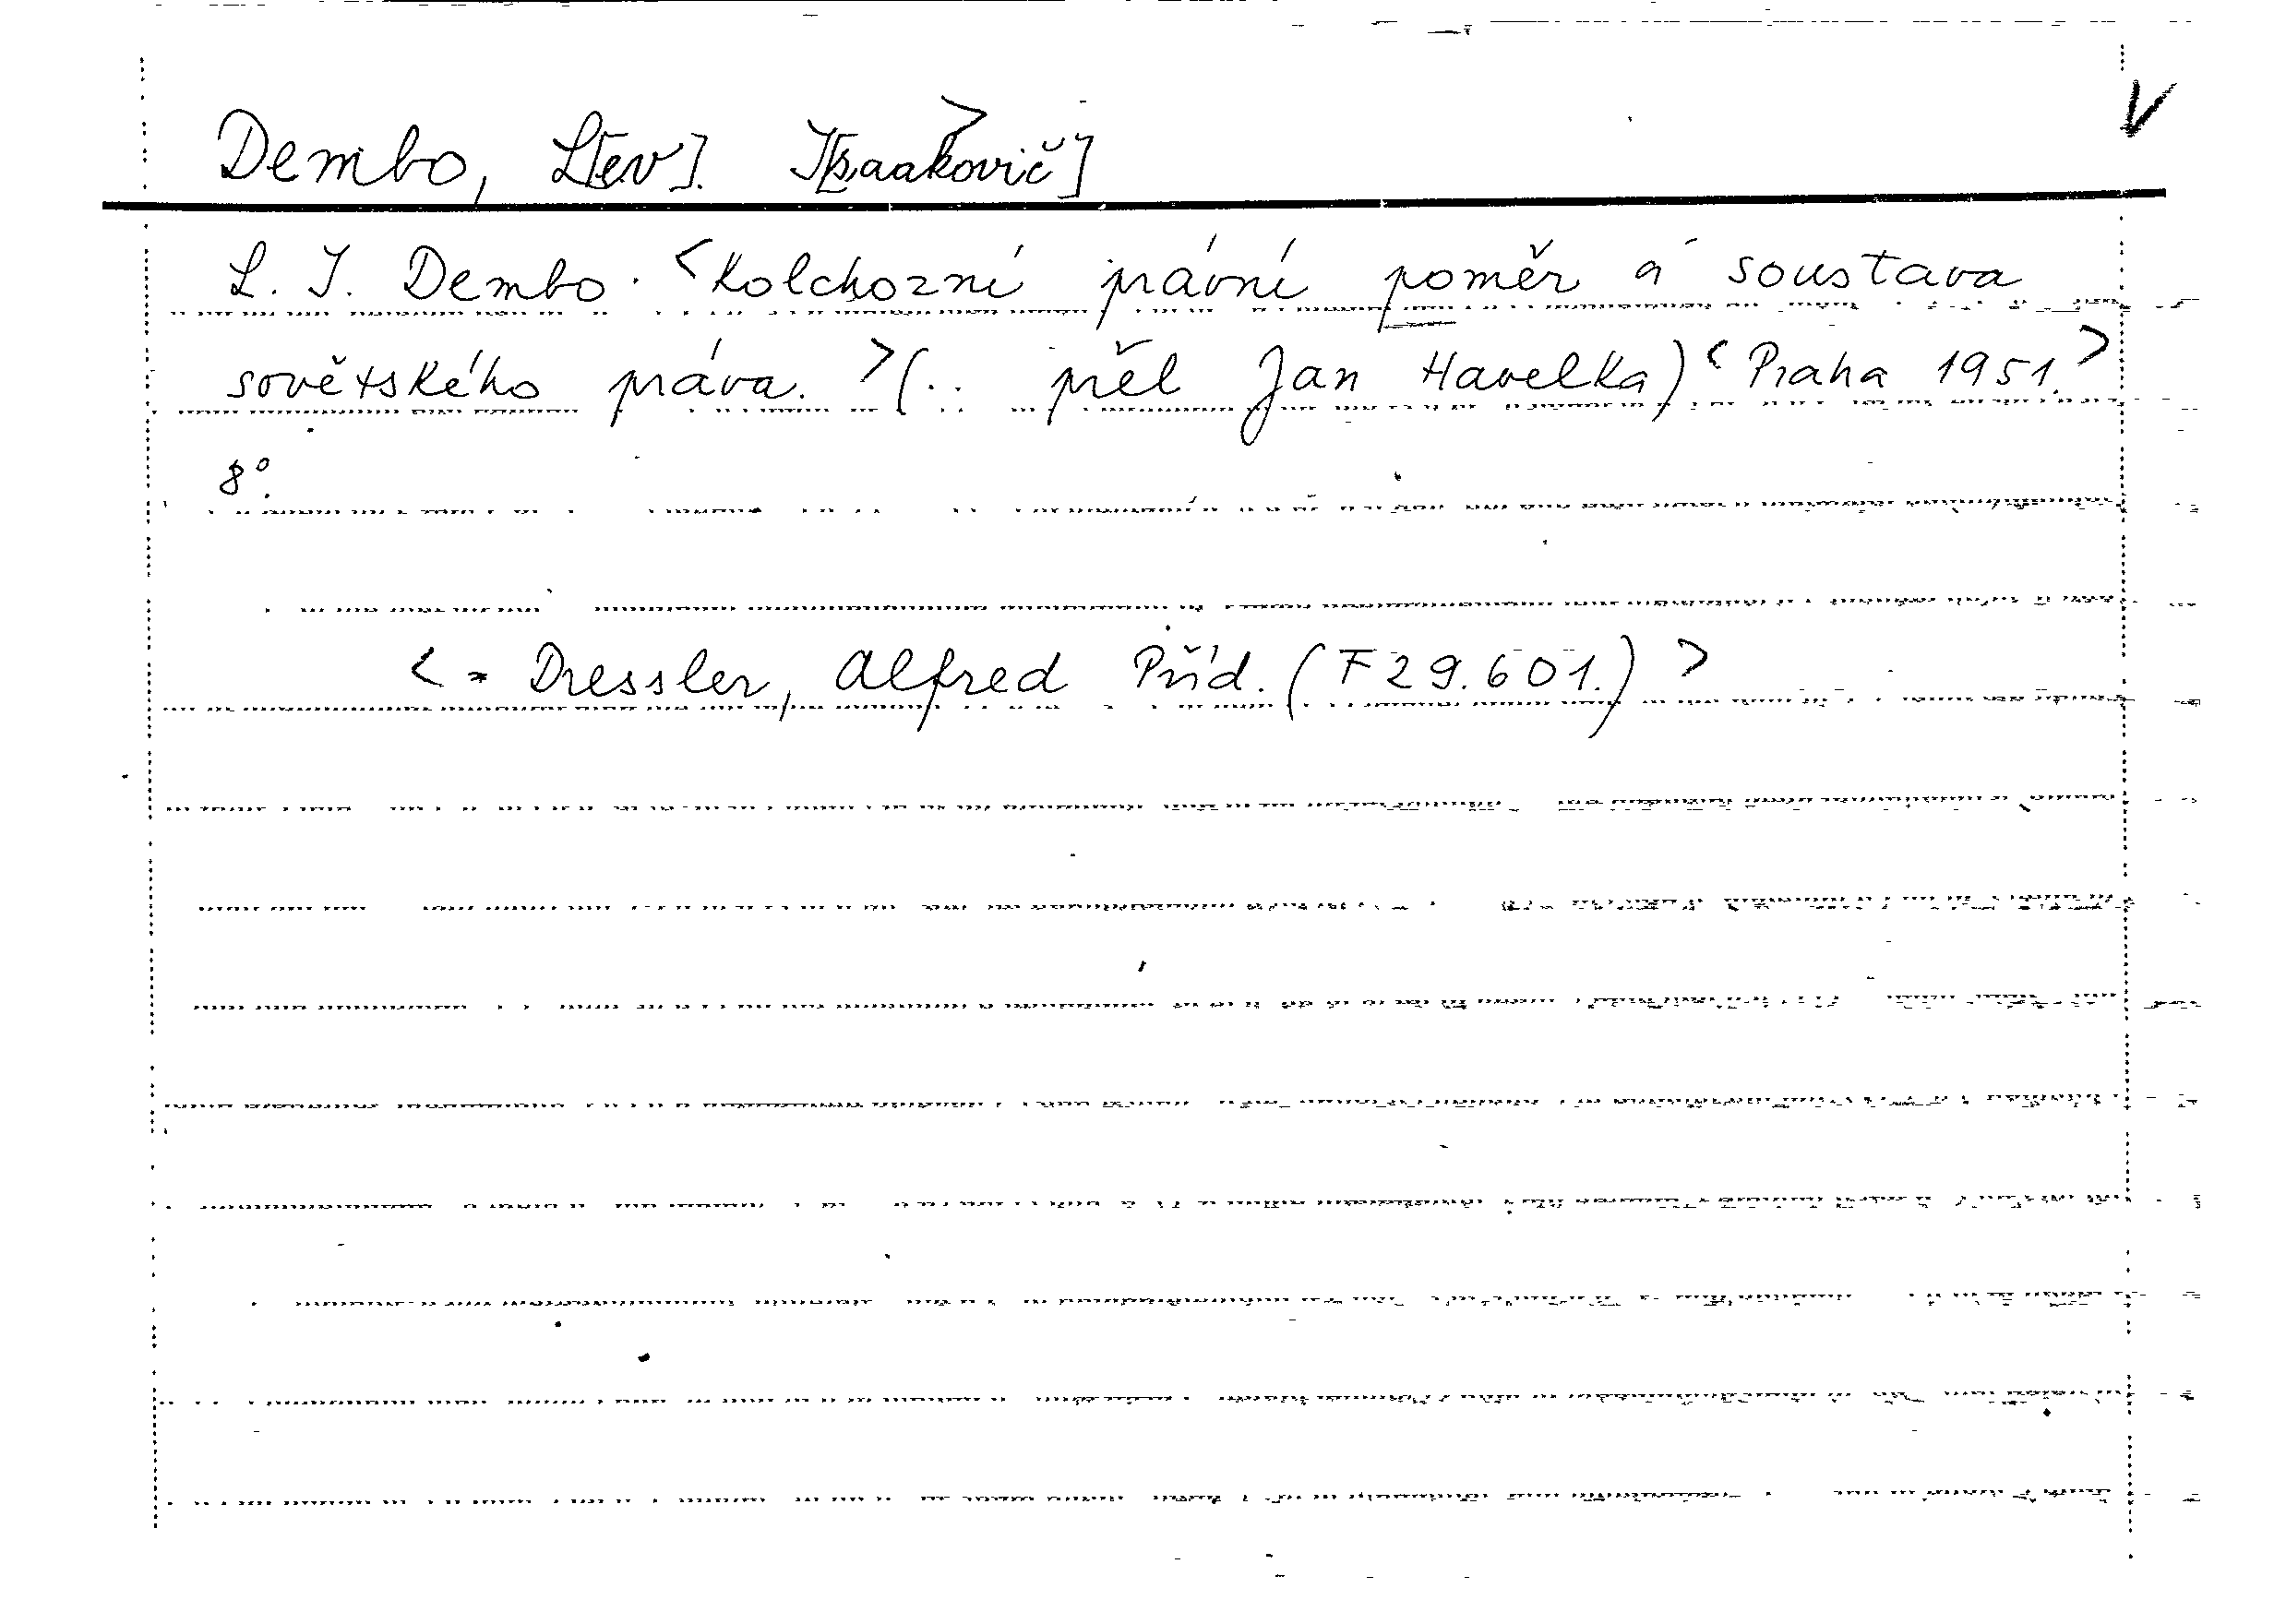 Dembo, L[ev]. I[saakovič] V
L. I. Dembo. <Kolchozní právní poměr a soustava
sovětského práva. >(.. přel Jan Havelka) <Praha 1951.>
8°.
<= Dressler, Alfred Příd. (F 29.601.) >